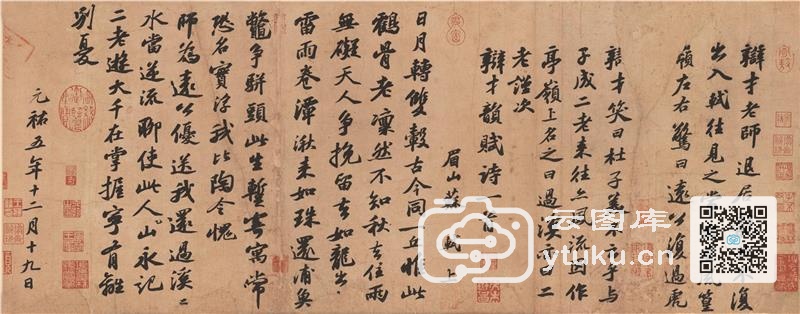 辯才老師退居不復
出入軾往見之嘗風篁
嶺左右驚曰遠公復過虎
辯才笑曰杜子美不云乎與
子成二老來往亦風流因作
亭嶺上名之曰過溪亦曰二
老謹次
辯才韻賦詩一首
眉山蘇軾上
日月轉雙轂古今同一丘惟此
鶴骨老凜然不知秋去住兩
無礙天人爭挽留去如龍出
雷雨卷潭湫來如珠還浦魚
鱉爭駢頭此生暫寄寓常
恐名實浮我比陶令愧
師為遠公優送我還過溪二
水當逆流聊使此人山永記
二老遊大千在掌握寧有離
別憂
元祐五年十二月十九日
云图库
ytuku.cn